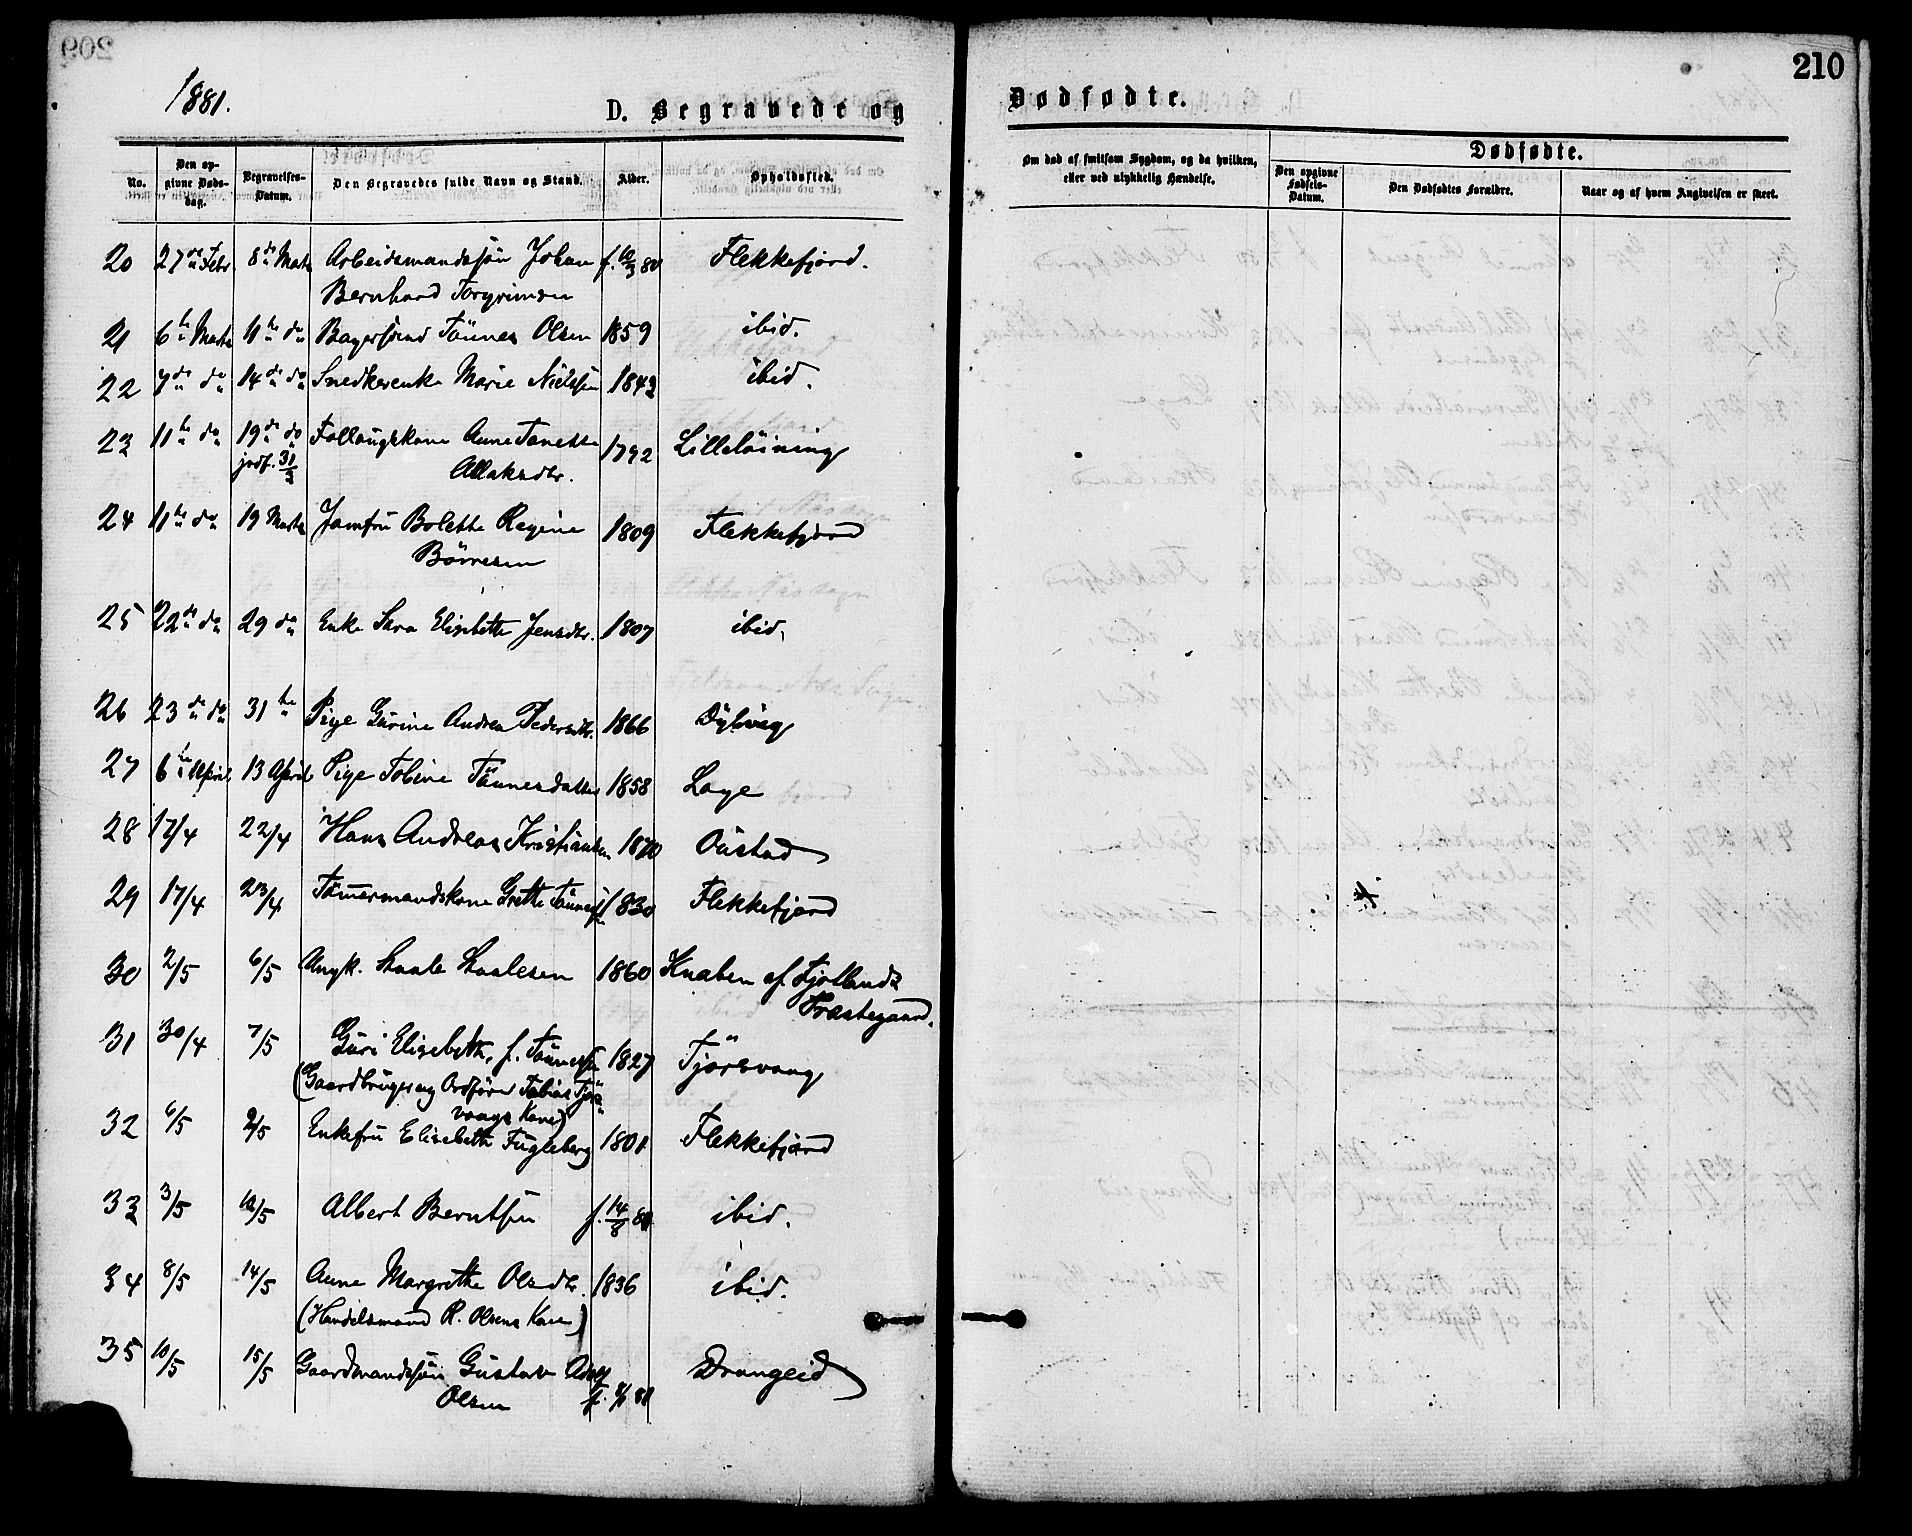 1881.
D. Begravede og
Dødfødte.
210
No.
Den opgivne Dødsdag.
Begravelses-Datum.
Den Begravedes fulde Navn og Stand.
Alder.
Opholdssted.
Om død af smitsom Sygdom, og da hvilken, eller ved ulykkelig Hændelse.
Dødfødte.
Den opgivne Fødsels-Datum.
Den Dødfødtes Forældre.
Naar og af hvem Angivelsen er skeet.
20 27de Febr. 8de Marts Arbeidsmandssøn Johan f. 10/3 80 Flekkefjord.
Bernhard Torgrimsen
21 6te Marts 11te do Tønnes Olsen 1859 ibid.
22 7de do 14de do Snedkerenke Marie Nielsen 1842 ibid.
23 11te do 19de do Follaugskone Anne Tonette 1792 Lilleløining
jodf. 31/3 Aslaksdtr.
24 11te do 19 Marts Jomfru Bolette Regine 1809 Flekkefjord
Börresen
25 22de do 29 do Enke Sara Elisebette Jensdtr. 1807 ibid.
26 23de do 31te Pige Gurine Andrea Pedersdtr. 1866 Dybvig
27 6te April 13 April Pige Tobine Tønnesdatter 1858 Loge
28 17/4 22/4 Hans Andreas Kristiansen 1870 Oustad
29 17/4 23/4 Tømmermandskone Grethe Tønnes 1830 Flekkefjord
30 2/5 6/5 Ungk. Staale Staalesen 1860 Knaben af Fjotlands
Præstegaard.
31 30/4 7/5 Guri Elisebeth, f. Tønnes 1827 Tjørsvaag
(Gaardbruger og Ordfører Tobias Tjørs
vaags Kone)
32 6/5 9/5 Enkefru Elisebeth Fugleberg 1801 Flekkefjord
33 3/5 10/5 Albert Berntsen f. 14/8 80 ibid.
34 8/5 14/5 Anne Margrethe Olsdtr. 1836 ibid.
(Handelsmand R. Olsens Kone)
35 10/5 15/5 Gaardmandssøn Gustav Adolf Drangeid
Olsen